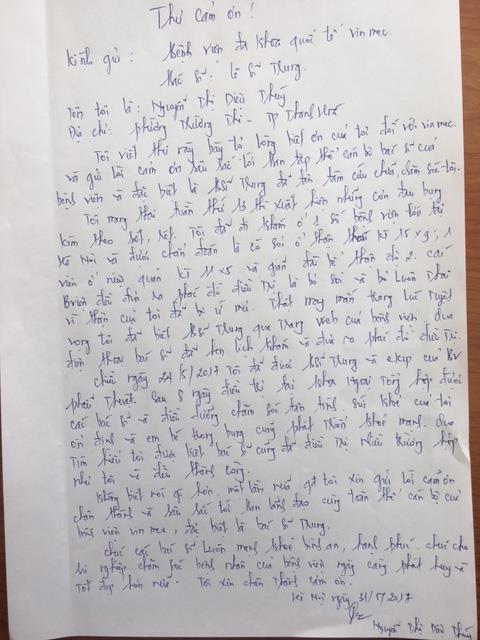 Thư cảm ơn!
Kính gửi: Bệnh viện đa khoa quốc tế vinmec.
Thạc sĩ: Lê Sĩ Trung.
Tên tôi là: Nguyễn Thị Diệu Thúy
Địa chỉ: phường Thượng Thi - TP Thanh Hoá
Tôi viết thư này bày tỏ lòng biết ơn của tôi đối với vinmec.
và gửi lời cảm ơn sâu sắc tới ban tập thể cán bộ bác sĩ của
bệnh viện và đặc biệt là bsĩ Trung đã tận tâm cứu chữa, chăm sóc tôi.
Tôi mang thai tuần thứ 13 thì xuất hiện những cơn đau bụng
kèm theo sốt, rét. Tôi đã đi khám ở 1 số bệnh viện lớn tại
Hà Nội và được chẩn đoán là có sỏi ở thận KT 15 x 9, 1
viên ở niệu quản KT 11 x 5 và giãn đài bể thận độ 2. các
Bviện đã đưa ra phác đồ điều trị là bỏ sỏi và bỏ luôn thai
vì thận của tôi đã bị ứ mủ. Thật may mắn trong lúc tuyệt
vọng tôi đã biết bsĩ Trung qua Trang web của bệnh viện. qua
điện thoại bác sĩ đã hẹn lịch khám và đưa ra phác đồ điều trị.
chiều ngày 24/5/2017 Tôi đã được bsĩ Trung và ekip của BV
phẫu thuật. sau 8 ngày điều trị tại khoa Ngoại Tổng hợp được
các bác sĩ và điều dưỡng chăm sóc tận tình sức khoẻ của tôi
ổn định và em bé trong bụng cũng phát triển khoẻ mạnh. qua
tìm hiểu tôi được biết bác sĩ cũng đã điều trị nhiều trường hợp
như tôi và đều thành công.
không biết nói gì hơn. một lần nữa tôi xin gửi lời cảm ơn
chân thành và sâu sắc tới ban lãnh đạo cùng toàn thể cán bộ của
bệnh viện vinmec, đặc biệt là bác sĩ Trung.
chúc các bác sĩ luôn mạnh khoẻ bình an, hạnh phúc. chúc cho
sự nghiệp chăm sóc bệnh nhân của bệnh viện ngày càng phát huy và
tốt đẹp hơn nữa. Tôi xin chân thành cảm ơn.
Hà Nội ngày 31/5/2017
Nguyễn Thị Diệu Thúy